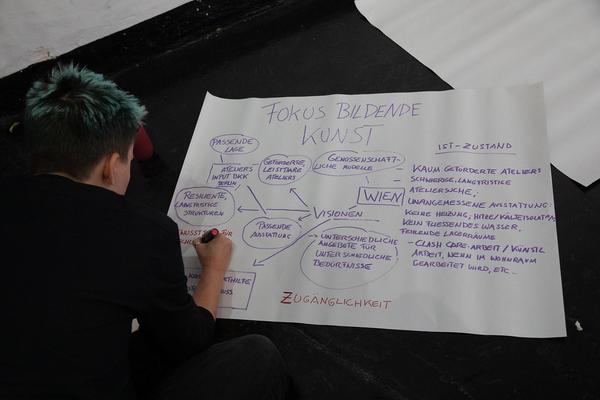 FOKUS BILDENDE
KUNST
PASSENDE
LAGE
ATELIERS
INPUT DKK
BERLIN
GEFÖRDERTE,
LEISTBARE
ATELIERS
GENOSSENSCHAFT-
LICHE MODELLE
RESILIENTE,
LANGFRISTIGE
STRUKTUREN
WIEN
VISIONEN
PASSENDE
AUSSTATTUNG
UNTERSCHIEDLICHE
ANGEBOTE FÜR
UNTERSCHIEDLICHE
BEDÜRFNISSE
ZUGÄNGLICHKEIT
IST-ZUSTAND
- KAUM GEFÖRDERTE ATELIERS
- SCHWIERIGE, LANGFRISTIGE
ATELIERSUCHE,
- UNANGEMESSENE AUSSTATTUNG:
KEINE HEIZUNG, HITZE/KÄLTEISOLAT
KEIN FLIESSENDES WASSER,
FEHLENDE LAGERRÄUME
- CLASH CARE-ARBEIT / KÜNSTL.
ARBEIT, WENN IM WOHNRAUM
GEARBEITET WIRD, ETC.